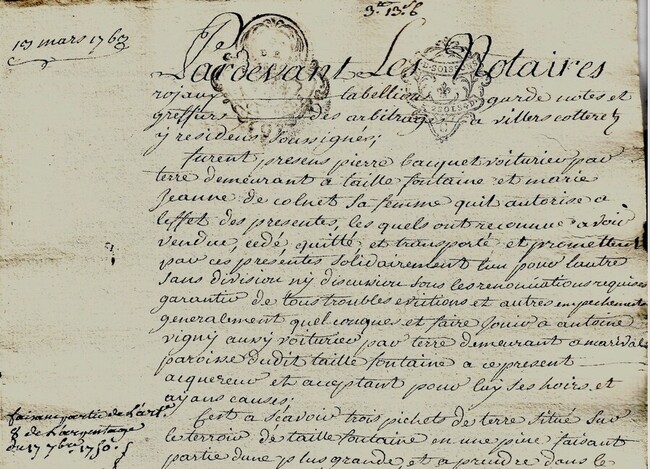 3# 13s 6
13 mars 1763
Pardevant Les Notaires
royaux tabellions garde notes et
greffiers des arbitrages a villers cotterets
y residens soussignés;
furent presens pierre bacquet voiturier par
terre demeurant a taille fontaine et marie
Jeanne de colnet sa femme quil autorise a
leffet des presentes, les quels ont reconnu avoir
vendu, cedé, quitté et transporté et promettent
par ces presentes solidairement lun pour lautre
sans division ny discussion sous les renonciations requises
garantir de tous troubles evictions et autres empechemens
generalement quelconques et faire Jouir a antoine
vigny aussy voiturier par terre demeurant a
paroisse dudit taille fontaine a ce present
acquereur et acceptant pour luy ses hoirs et
ayans causes;
Cest a scavoir trois pichets de terre situé sur
le terroir de taille fontaine en une piece faisant
partie dune plus grande, et a prendre dans le
faisant partie de lart.
8 de Largentage
du 17 7bre 1750